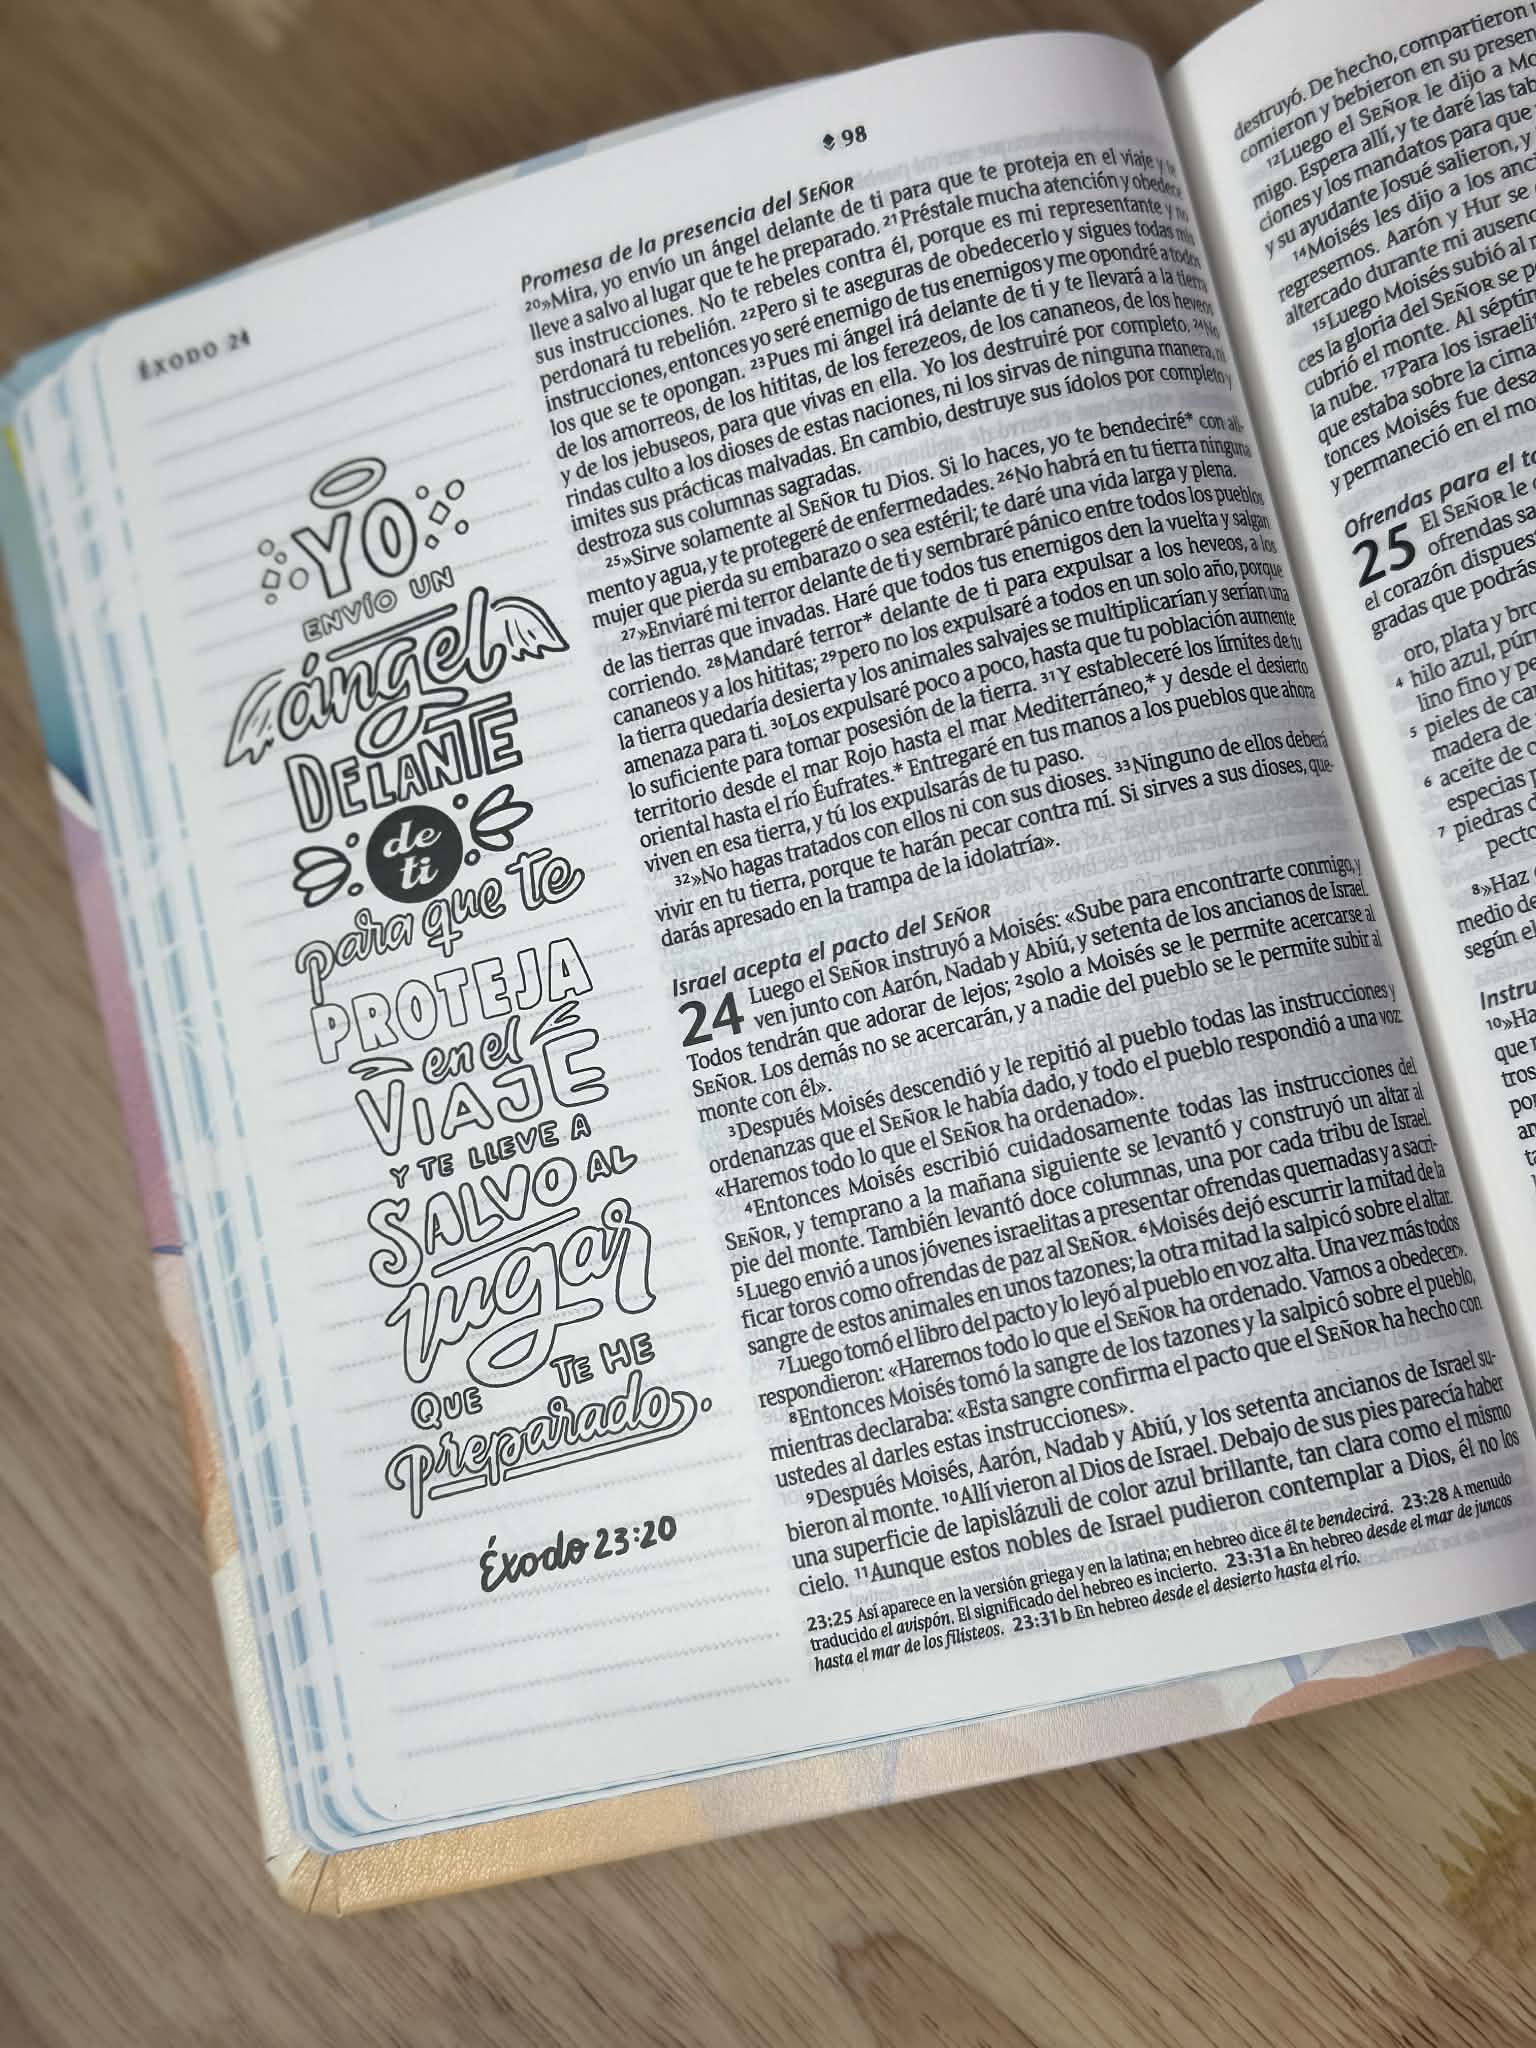 ÉXODO 24
98
YO
ENVÍO UN
ángel
DELANTE
de
ti
para que te
PROTEJA
en el
VIAJE
Y TE LLEVE A
SALVO AL
lugar
QUE TE HE
preparado
Éxodo 23:20
Promesa de la presencia del SEÑOR
20»Mira, yo envío un ángel delante de ti para que te proteja en el viaje y te
lleve a salvo al lugar que te he preparado. 21Préstale mucha atención y obedece
sus instrucciones. No te rebeles contra él, porque es mi representante y no
perdonará tu rebelión. 22Pero si te aseguras de obedecerlo y sigues todas mis
instrucciones, entonces yo seré enemigo de tus enemigos y me opondré a todos
los que se te opongan. 23Pues mi ángel irá delante de ti y te llevará a la tierra
de los amorreos, de los hititas, de los ferezeos, de los cananeos, de los heveos
y de los jebuseos, para que vivas en ella. Yo los destruiré por completo. 24No
rindas culto a los dioses de estas naciones, ni los sirvas de ninguna manera, ni
imites sus prácticas malvadas. En cambio, destruye sus ídolos por completo y
destroza sus columnas sagradas.
25»Sirve solamente al SEÑOR tu Dios. Si lo haces, yo te bendeciré* con ali-
mento y agua, y te protegeré de enfermedades. 26No habrá en tu tierra ninguna
mujer que pierda su embarazo o sea estéril; te daré una vida larga y plena.
27»Enviaré mi terror delante de ti y sembraré pánico entre todos los pueblos
de las tierras que invadas. Haré que todos tus enemigos den la vuelta y salgan
corriendo. 28Mandaré terror* delante de ti para expulsar a los heveos, a los
cananeos y a los hititas; 29pero no los expulsaré a todos en un solo año, porque
la tierra quedaría desierta y los animales salvajes se multiplicarían y serían una
amenaza para ti. 30Los expulsaré poco a poco, hasta que tu población aumente
lo suficiente para tomar posesión de la tierra. 31Y estableceré los límites de tu
territorio desde el mar Rojo hasta el mar Mediterráneo,* y desde el desierto
oriental hasta el río Éufrates.* Entregaré en tus manos a los pueblos que ahora
viven en esa tierra, y tú los expulsarás de tu paso.
32»No hagas tratados con ellos ni con sus dioses. 33Ninguno de ellos deberá
vivir en tu tierra, porque te harán pecar contra mí. Si sirves a sus dioses, que-
darás apresado en la trampa de la idolatría».
Israel acepta el pacto del SEÑOR
24 Luego el SEÑOR instruyó a Moisés: «Sube para encontrarte conmigo, y
ven junto con Aarón, Nadab y Abiú, y setenta de los ancianos de Israel.
Todos tendrán que adorar de lejos; 2solo a Moisés se le permite acercarse al
SEÑOR. Los demás no se acercarán, y a nadie del pueblo se le permite subir al
monte con él».
3Después Moisés descendió y le repitió al pueblo todas las instrucciones y
ordenanzas que el SEÑOR le había dado, y todo el pueblo respondió a una voz:
«Haremos todo lo que el SEÑOR ha ordenado».
4Entonces Moisés escribió cuidadosamente todas las instrucciones del
SEÑOR, y temprano a la mañana siguiente se levantó y construyó un altar al
pie del monte. También levantó doce columnas, una por cada tribu de Israel.
5Luego envió a unos jóvenes israelitas a presentar ofrendas quemadas y a sacri-
ficar toros como ofrendas de paz al SEÑOR. 6Moisés dejó escurrir la mitad de la
sangre de estos animales en unos tazones; la otra mitad la salpicó sobre el altar.
7Luego tomó el libro del pacto y lo leyó al pueblo en voz alta. Una vez más todos
respondieron: «Haremos todo lo que el SEÑOR ha ordenado. Vamos a obedecer».
8Entonces Moisés tomó la sangre de los tazones y la salpicó sobre el pueblo,
mientras declaraba: «Esta sangre confirma el pacto que el SEÑOR ha hecho con
ustedes al darles estas instrucciones».
9Después Moisés, Aarón, Nadab y Abiú, y los setenta ancianos de Israel su-
bieron al monte. 10Allí vieron al Dios de Israel. Debajo de sus pies parecía haber
una superficie de lapislázuli de color azul brillante, tan clara como el mismo
cielo. 11Aunque estos nobles de Israel pudieron contemplar a Dios, él no los
23:25 Así aparece en la versión griega y en la latina; en hebreo dice él te bendecirá. 23:28 A menudo
traducido el avispón. El significado del hebreo es incierto. 23:31a En hebreo desde el mar de juncos
hasta el mar de los filisteos. 23:31b En hebreo desde el desierto hasta el río.
destruyó. De hecho, compartieron
comieron y bebieron en su
12Luego el SEÑOR le dijo a
migo. Espera allí, y te daré las
ciones y los mandatos para que
y su ayudante Josué salieron, y
14Moisés les dijo a los
regresemos. Aarón y Hur se
altercado durante mi
15Luego Moisés subió al
ces la gloria del SEÑOR se
cubrió el monte. Al
la nube. 17Para los
que estaba sobre la cima
tonces Moisés fue
y permaneció en el
Ofrendas para el
25 El SEÑOR le
ofrendas
el corazón
gradas que podrás
oro, plata y
4 hilo azul,
lino fino y
5 pieles de
madera de
6 aceite de
especias
7 piedras
8»Haz
medio de
según el
10»
que